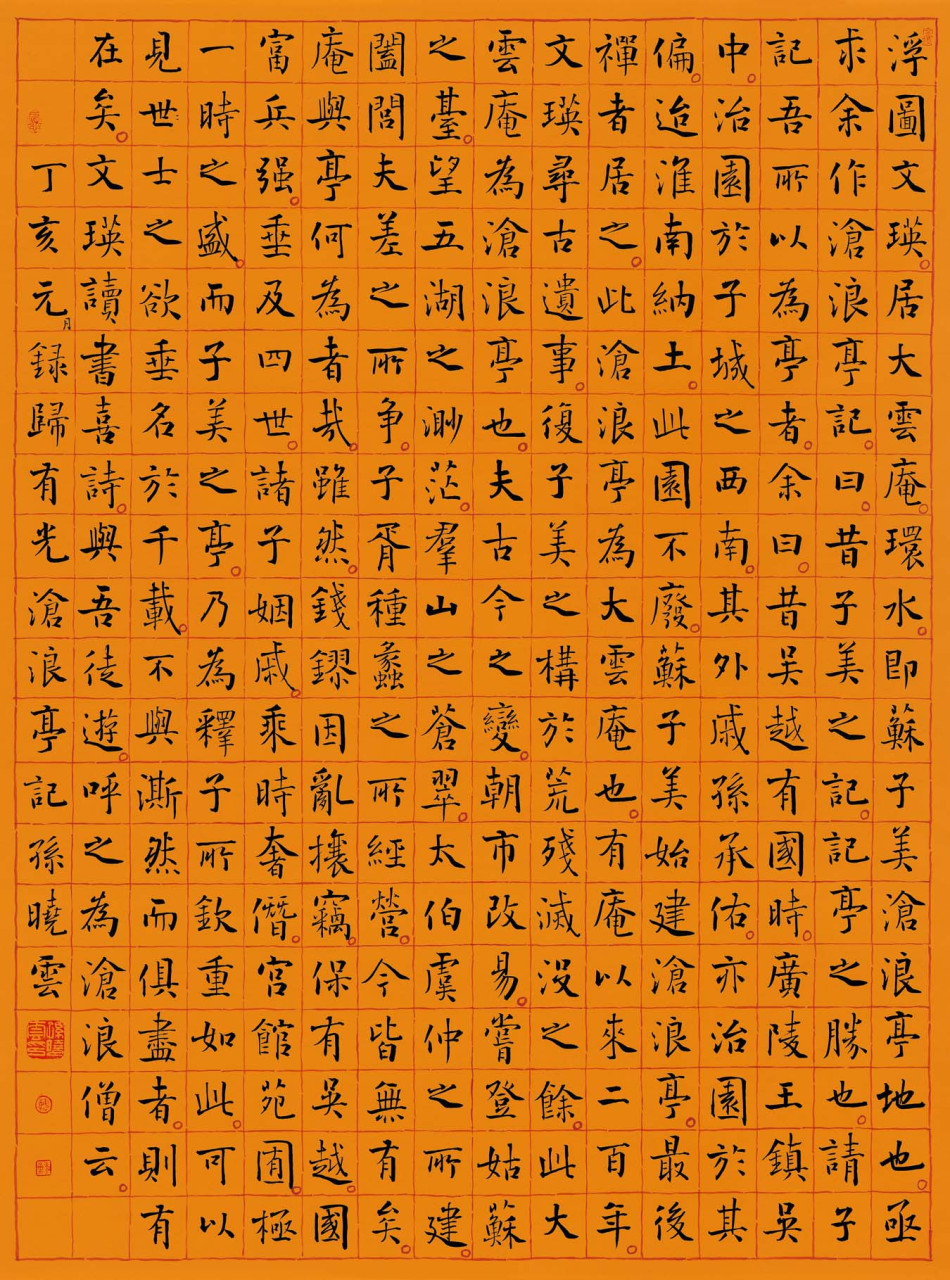 浮圖文瑛。居大雲庵。環水。即蘇子美滄浪亭地也。亟
求余作滄浪亭記。曰。昔子美之記。記亭之勝也。請子
記吾所以為亭者。余曰。昔吳越有國時。廣陵王鎮吳
中。治園於子城之西南。其外戚孫承佑。亦治園於其
偏。迨淮南納土。此園不廢。蘇子美始建滄浪亭。最後
禪者居之。此滄浪亭為大雲庵也。有庵以來二百年。
文瑛尋古遺事。復子美之構於荒殘滅没之餘。此大
雲庵為滄浪亭也。夫古今之變。朝市改易。嘗登姑蘇
之臺。望五湖之渺茫。羣山之蒼翠。太伯虞仲之所建。
闔閭夫差之所争。子胥種蠡之所經營。今皆無有矣。
庵與亭何為者哉。雖然。錢鏐因亂攘竊。保有吳越。國
富兵强。垂及四世。諸子姻戚。乘時奢僭。宮館苑囿。極
一時之盛。而子美之亭。乃為釋子所欽重如此。可以
見世士之欲垂名於千載。不與澌然而俱盡者。則有
在矣。文瑛讀書喜詩。與吾徒遊。呼之為滄浪僧云。
丁亥元月録歸有光滄浪亭記孫曉雲